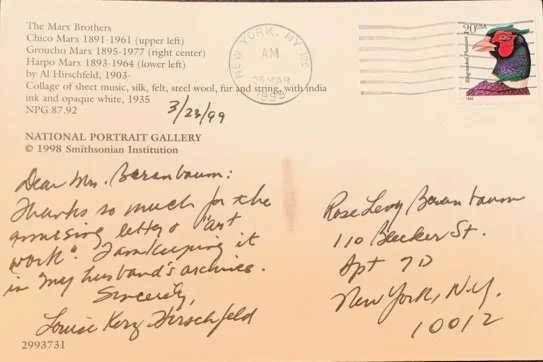 The Marx Brothers
Chico Marx 1891-1961 (upper left)
Groucho Marx 1895-1977 (right center)
Harpo Marx 1893-1964 (lower left)
by Al Hirschfeld, 1903-
Collage of sheet music, silk, felt, steel wool, fur and string, with india
ink and opaque white, 1935
NPG.87.92
3/23/99
NATIONAL PORTRAIT GALLERY
© 1998 Smithsonian Institution
NEW YORK, NY 100
AM
26 MAR
1999
20 USA
Ring-necked Pheasant
1998
Dear Mrs. Beranbaum:
Thanks so much for the
amusing letter & "art
work". I am keeping it
in my husband's archive.
Sincerely,
Louise Kerz Hirschfeld
Rose Levy Beranbaum
110 Bleecker St.
Apt 7D
New York, N.Y.
10012
2993731